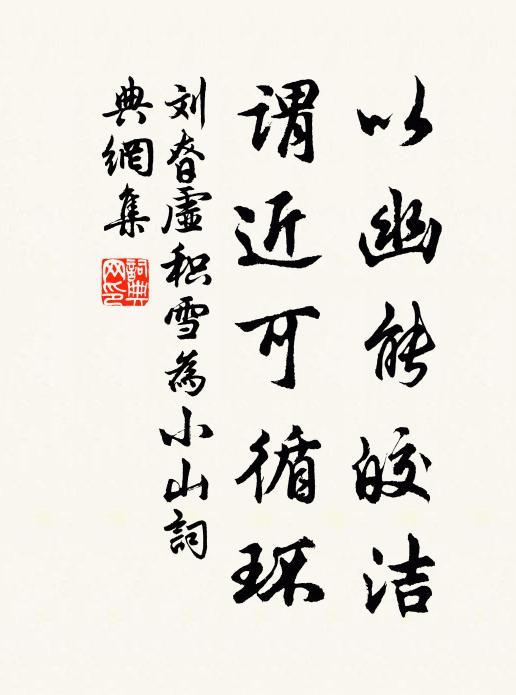 以幽能皎洁
谓近可循环
刘昚虚积雪為小山詞
典網集
詞典
网印